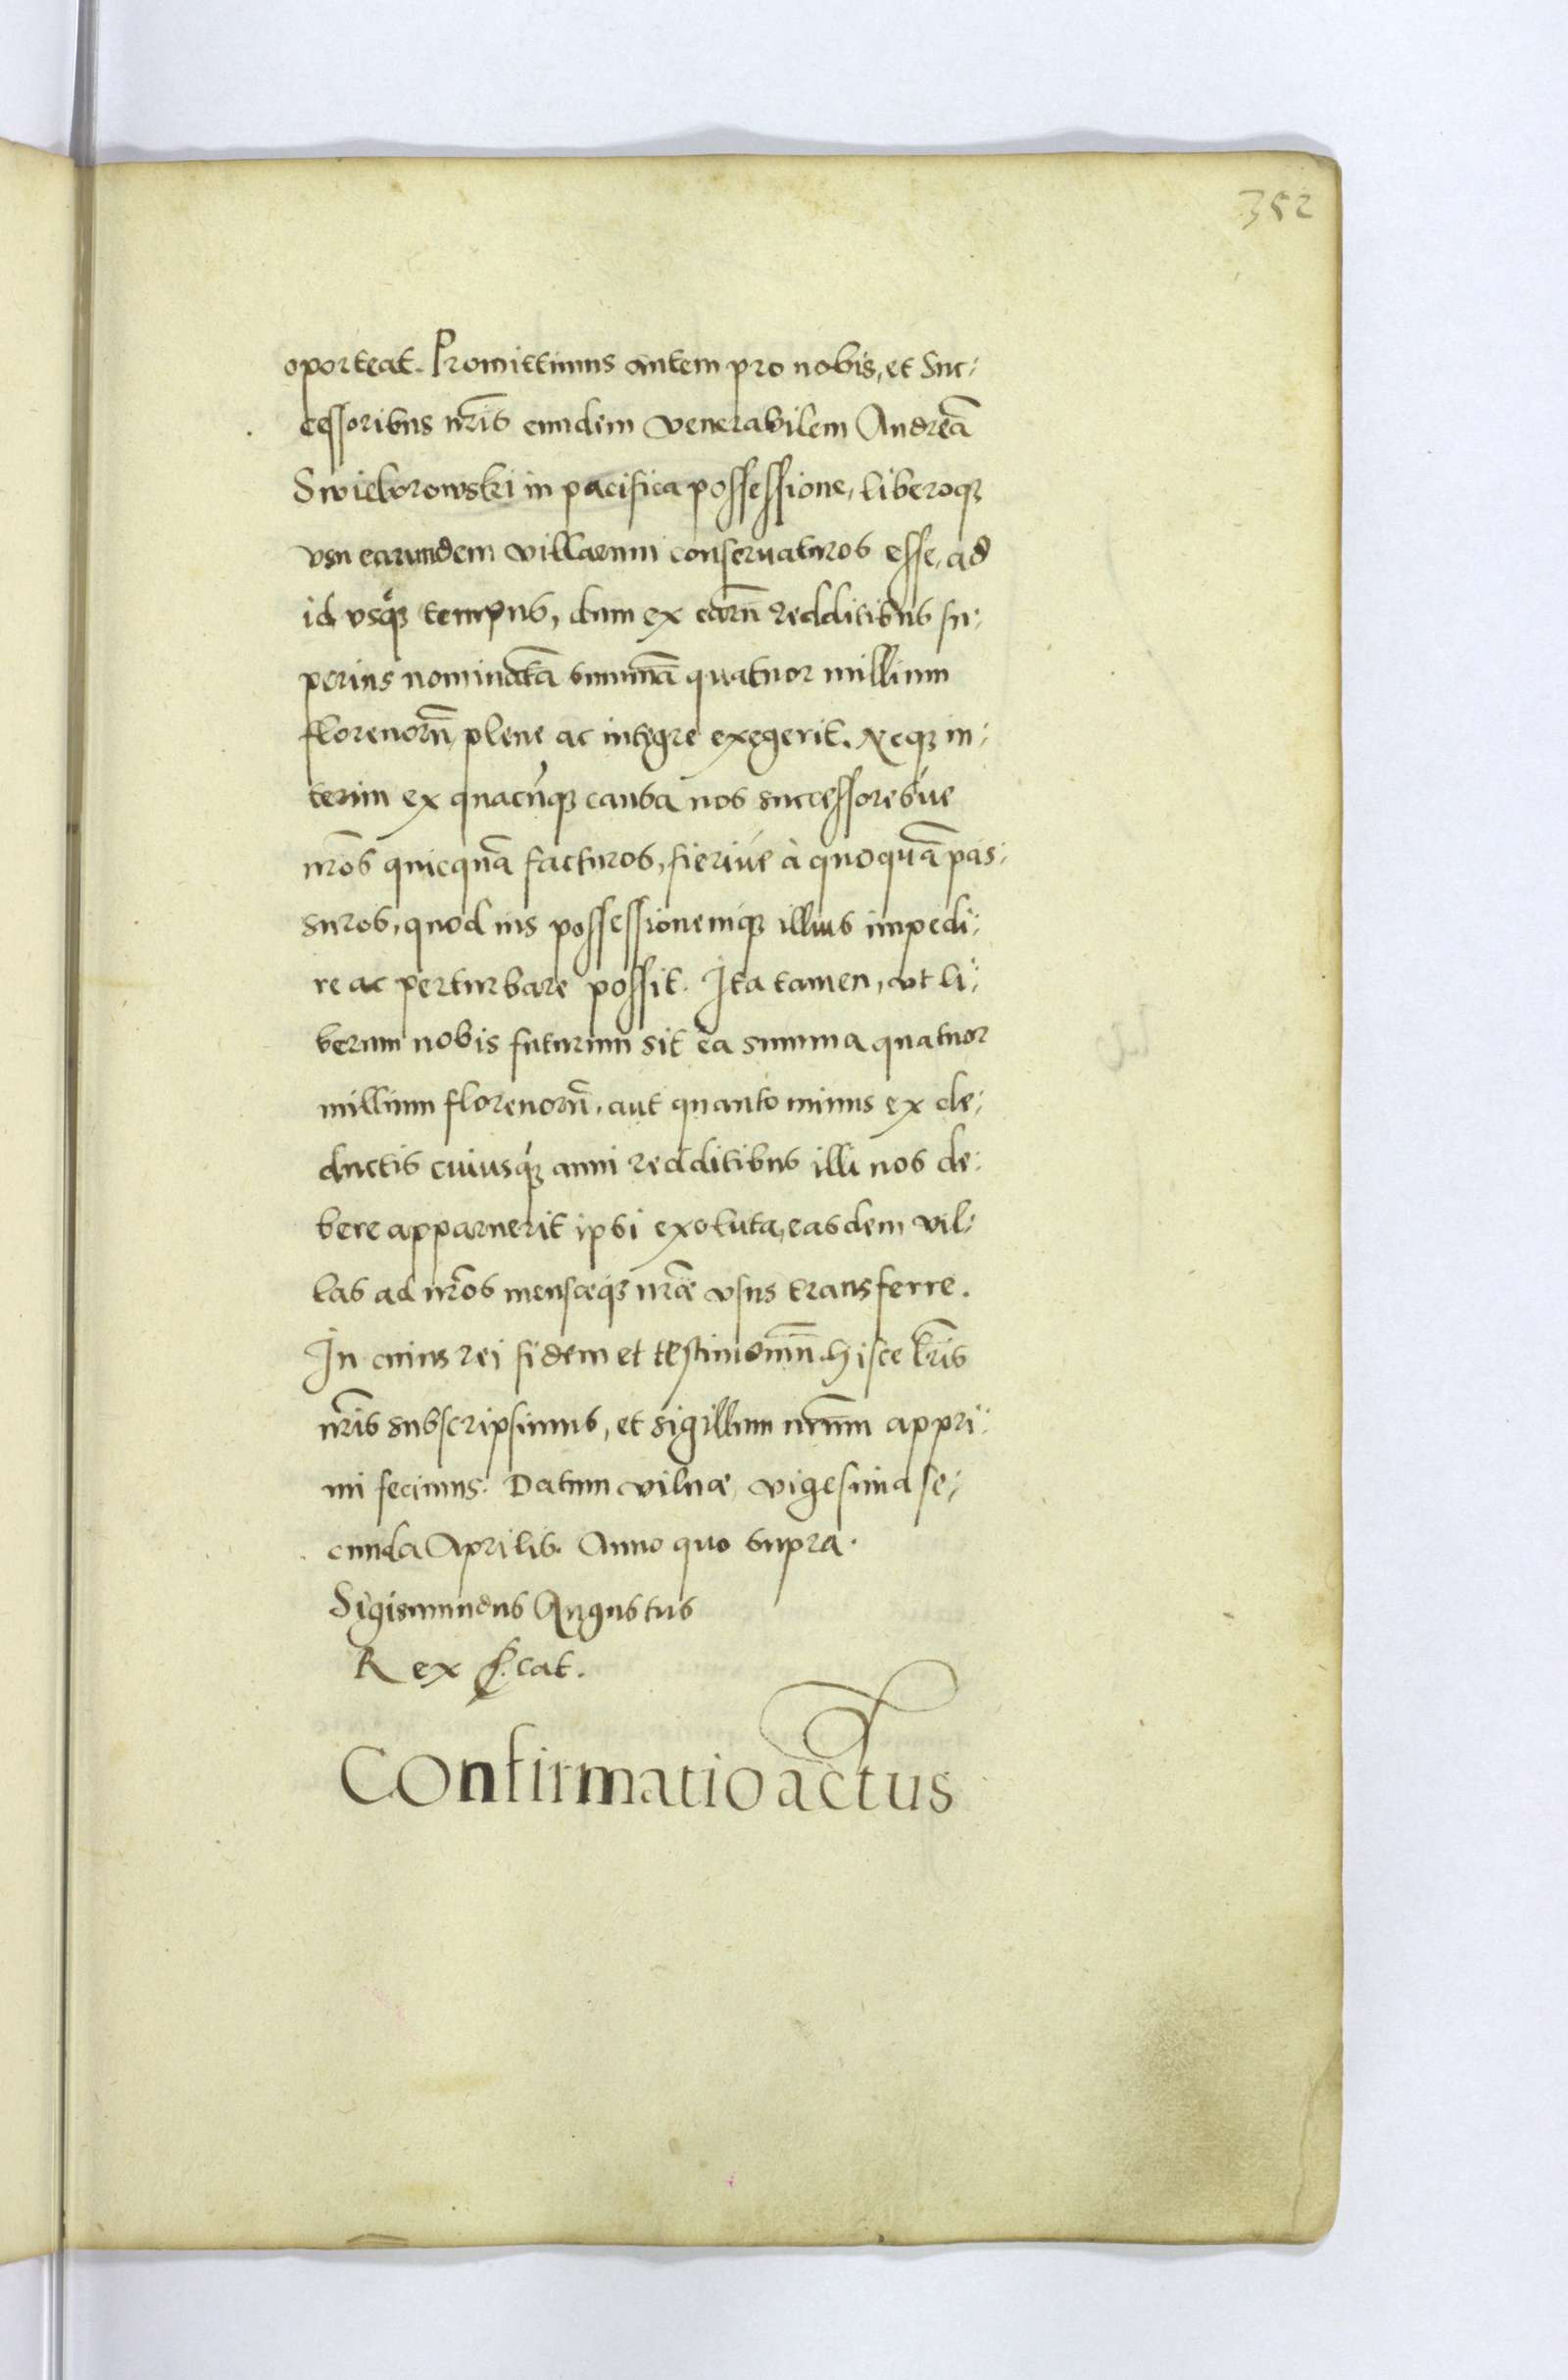 352
oporteat. Promittimus autem pro nobis, et Suc:
cessoribus nr̃is eundem venerabilem Andreã
Swieborowski in pacifica possessione, liberoqꝫ
vsu earundem villarum conseruaturos esse, ad
id vsqꝫ tempus, dum ex earũ redditibus su:
perius nominatã summã quatuor millium
florenorũ plene ac integre exegerit. Neqꝫ in:
terim ex quacũqꝫ causa nos successoresúe
nr̃os quicquã facturos, fieriúe à quoquã pas:
suros, quod ius possessionemqꝫ illius impedi:
re ac perturbare possit. Ita tamen, vt li:
berum nobis futurum sit ea summa quatuor
millium florenorũ, aut quanto minus ex de:
ductis cuiusqꝫ anni redditibus illi nos de:
bere apparuerit ipsi exoluta, easdem vil:
las ad nr̃os mensæqꝫ nr̃æ vsus transferre.
In cuius rei fidem et testimoniũ hisce lr̃is
nr̃is subscripsimus, et sigillum nr̃um appri:
mi fecimus. Datum vilnæ vigesima se:
cunda Aprilis. Anno quo supra.
Sigismundus Augustus
Rex sc̃cat.
Confirmatio actus